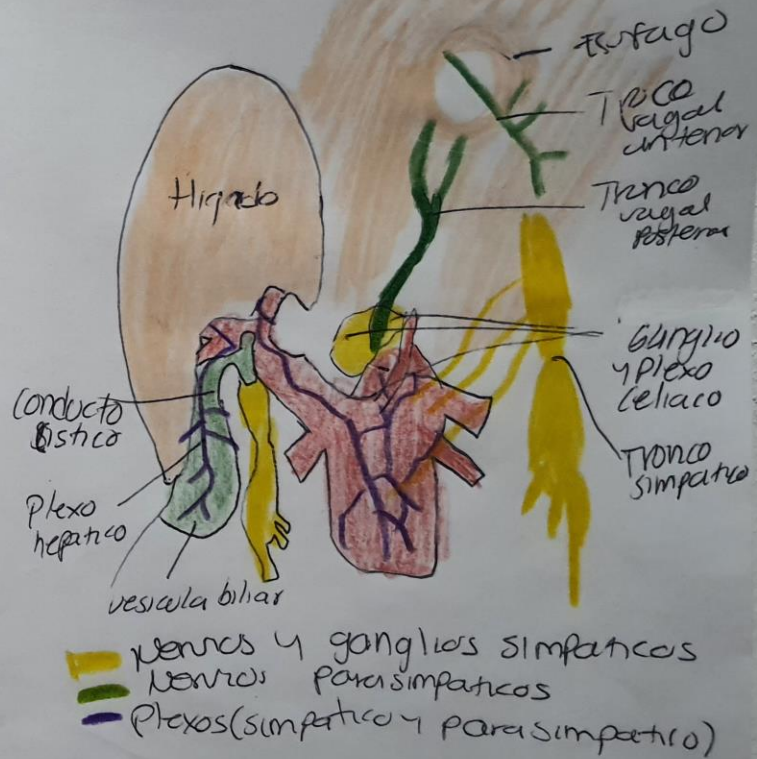 Esofago
Trico
vagal
anterior
Higado
Tronco
vagal
Posterior
Ganglio
y Plexo
Celiaco
Conducto
sistico
Tronco
simpatico
Plexo
hepatico
vesicula biliar
Nervios y ganglios simpaticos
Nervios parasimpaticos
Plexos (simpatico y parasimpatico)